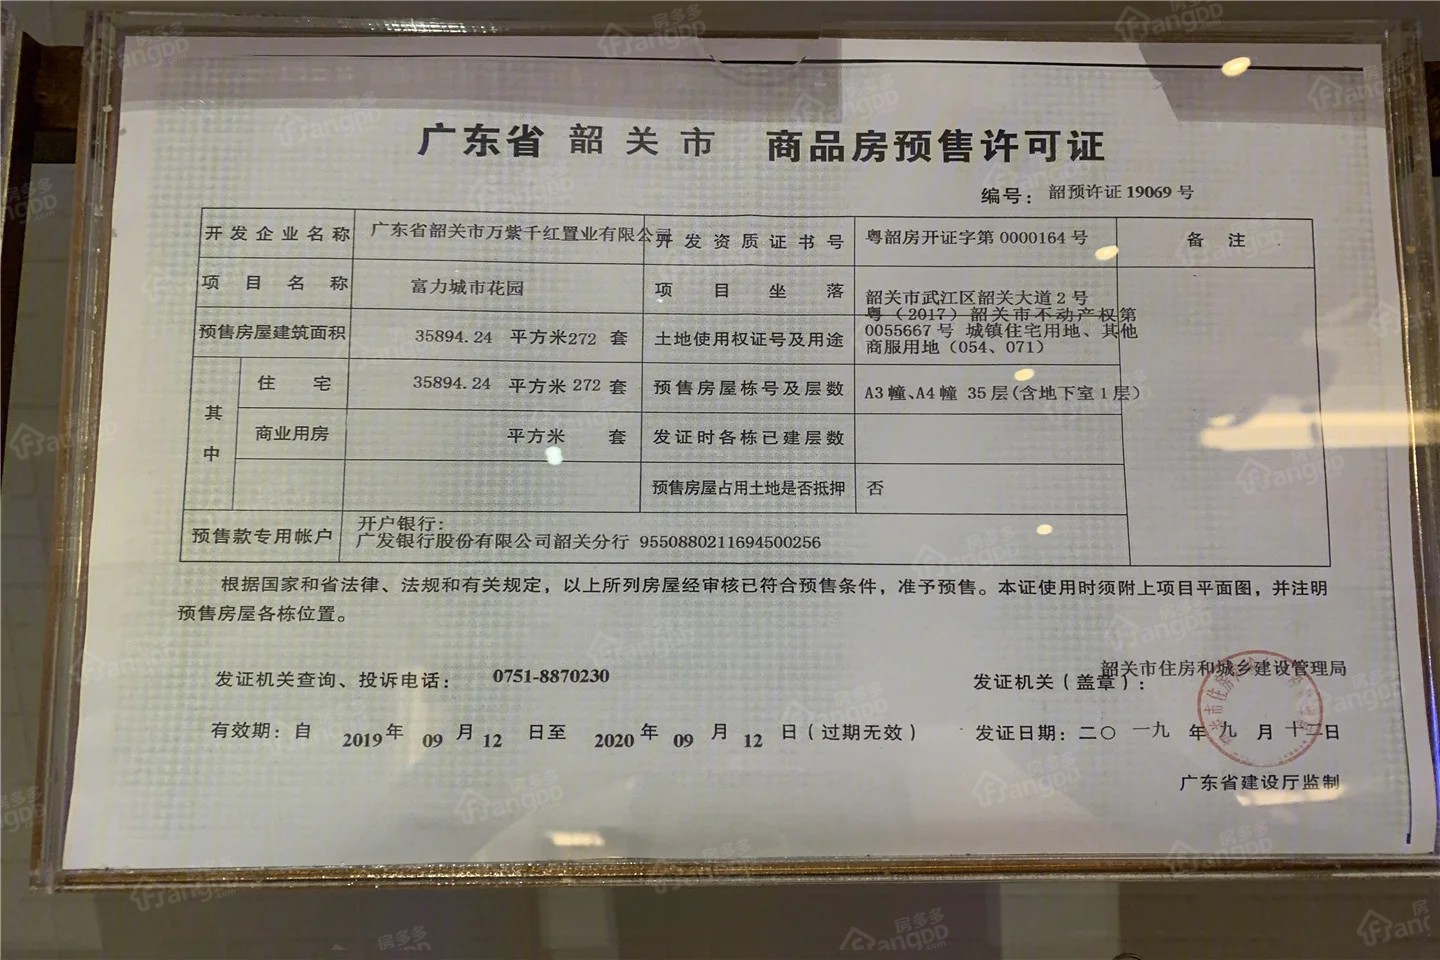 广东省 韶关市 商品房预售许可证
编号：韶预许证 19069 号
开发企业名称 广东省韶关市万紫千红置业有限公司 开发资质证书号 粤韶房开证字第 0000164 号 备 注
项目名称 富力城市花园 项目坐落 韶关市武江区韶关大道 2 号
预售房屋建筑面积 35894.24 平方米 272 套 土地使用权证号及用途 粤（2017）韶关市不动产权第
0055667 号 城镇住宅用地、其他
商服用地（054、071）
其中 住 宅 35894.24 平方米 272 套 预售房屋栋号及层数 A3 幢、A4 幢 35 层(含地下室 1 层）
商业用房 平方米 套 发证时各栋已建层数
预售房屋占用土地是否抵押 否
预售款专用帐户 开户银行：
广发银行股份有限公司韶关分行 9550880211694500256
根据国家和省法律、法规和有关规定，以上所列房屋经审核已符合预售条件，准予预售。本证使用时须附上项目平面图，并注明
预售房屋各栋位置。
发证机关查询、投诉电话： 0751-8870230
发证机关（盖章）： 韶关市住房和城乡建设管理局
有效期：自 2019 年 09 月 12 日至 2020 年 09 月 12 日（过期无效）
发证日期：二〇一九 年 九 月 十二 日
广东省建设厅监制
房多多
Fangdd.com